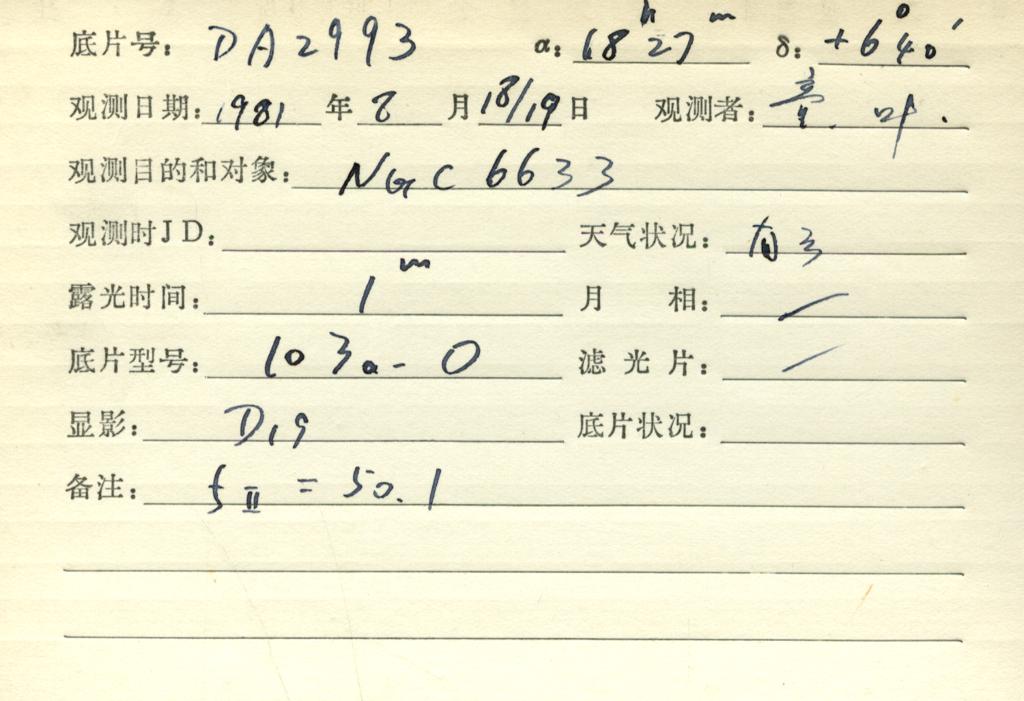 底片号: DA2993 α: 18h27m δ: +6°40′
观测日期: 1981 年 8 月 18/19 日 观测者: 叶.
观测目的和对象: NGC 6633
观测时JD: 天气状况: 有云
露光时间: 1m 月 相: /
底片型号: 103a-O 滤光片: /
显影: D19 底片状况:
备注: fⅡ = 50.1